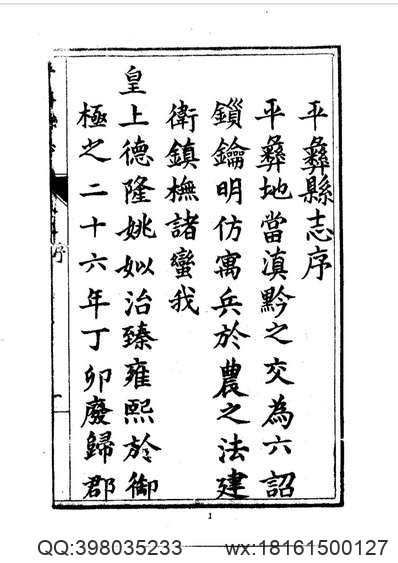 平彝縣志序
平彝地當滇黔之交為六詔
鎖鑰明仿寓兵於農之法建
衛鎮撫諸蠻我
皇上德隆姚姒治臻雍熙於御
極之二十六年丁卯廢歸郡
序
1
QQ:398035233
wx:18161500127